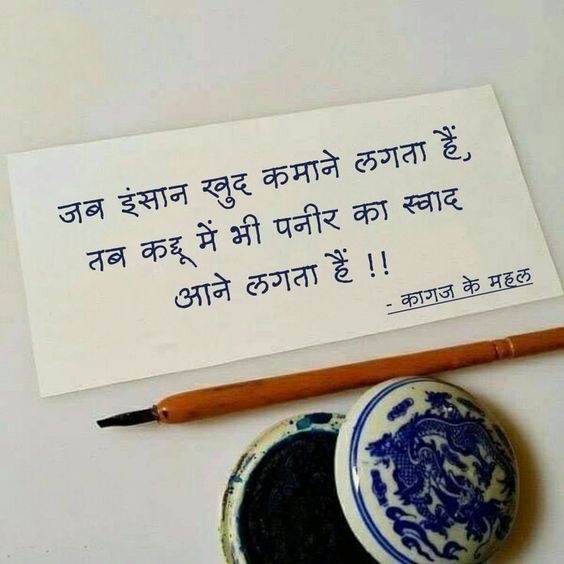 जब इंसान खुद कमाने लगता हैं,
तब कद्दू में भी पनीर का स्वाद
आने लगता हैं !!
- कागज के महल